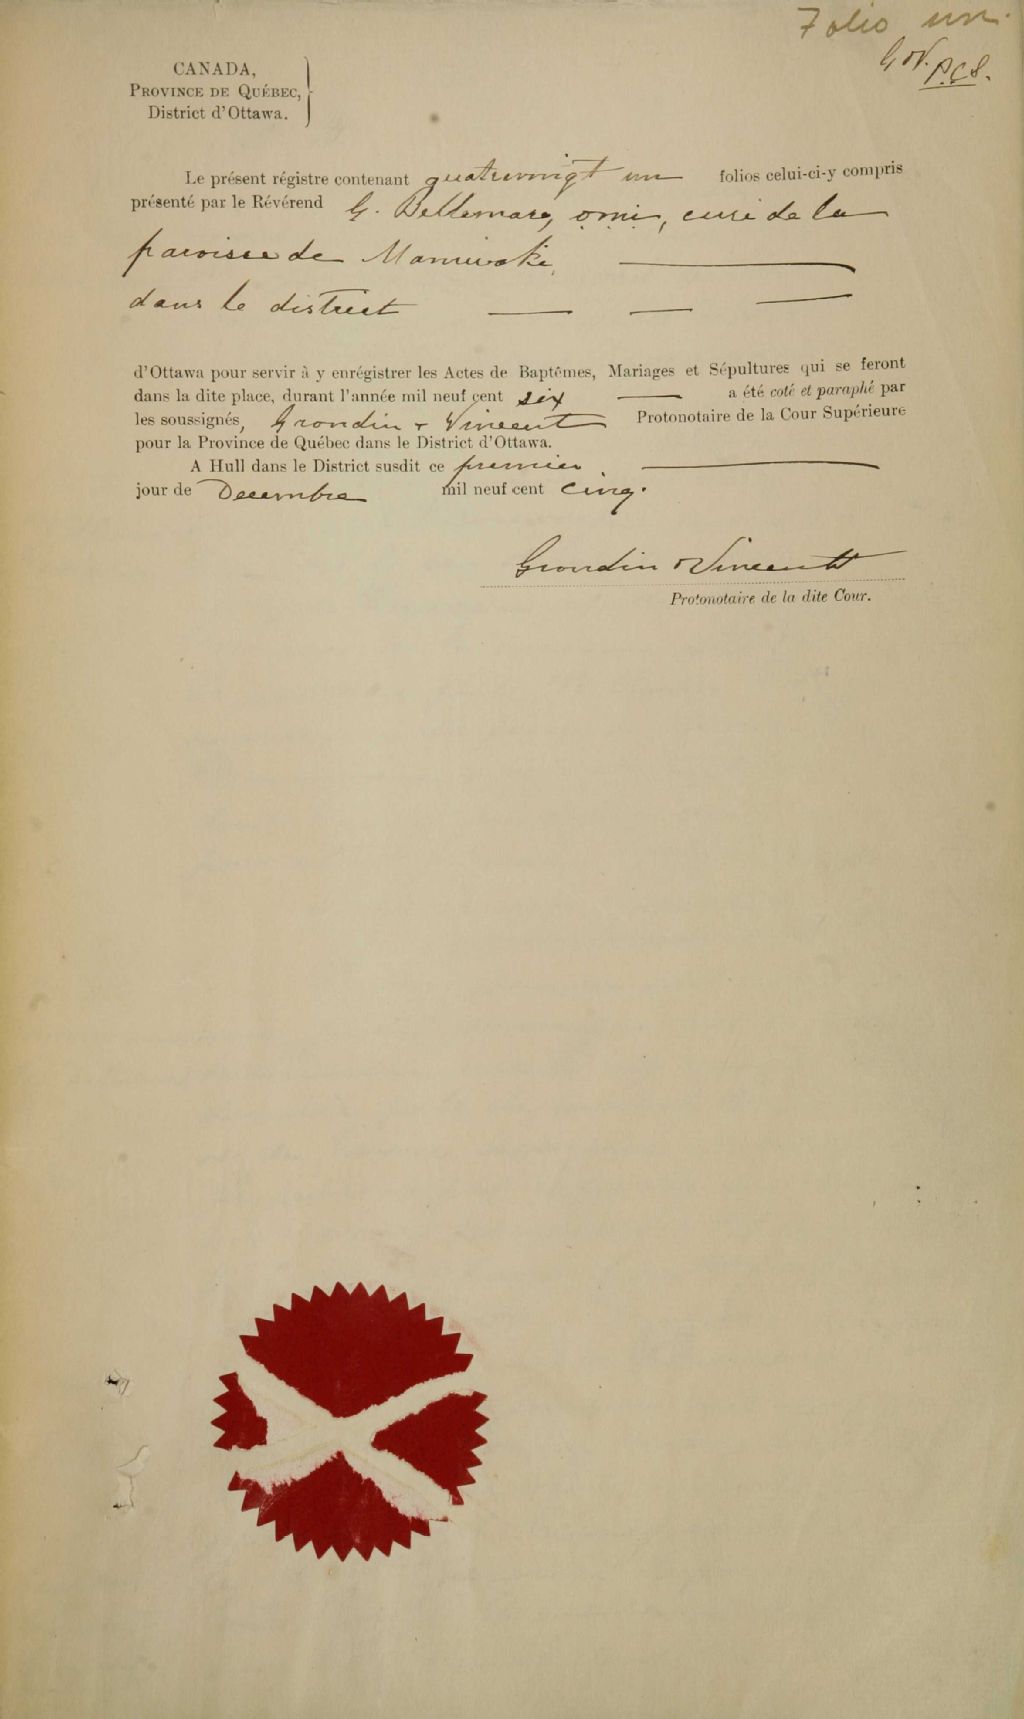 Folio un.
G & V.
P.C.S.
CANADA,
PROVINCE DE QUÉBEC,
District d'Ottawa.
Le présent régistre contenant quatrevingt un folios celui-ci-y compris
présenté par le Révérend G. Bellemare, o.m.i., curé de la
paroisse de Maniwaki,
dans le district
d'Ottawa pour servir à y enrégistrer les Actes de Baptêmes, Mariages et Sépultures qui se feront
dans la dite place, durant l'année mil neuf cent six a été coté et paraphé par
les soussignés, Grondin & Vincent Protonotaire de la Cour Supérieure
pour la Province de Québec dans le District d'Ottawa.
A Hull dans le District susdit ce premier
jour de Decembre mil neuf cent cinq.
Grondin & Vincent
Protonotaire de la dite Cour.